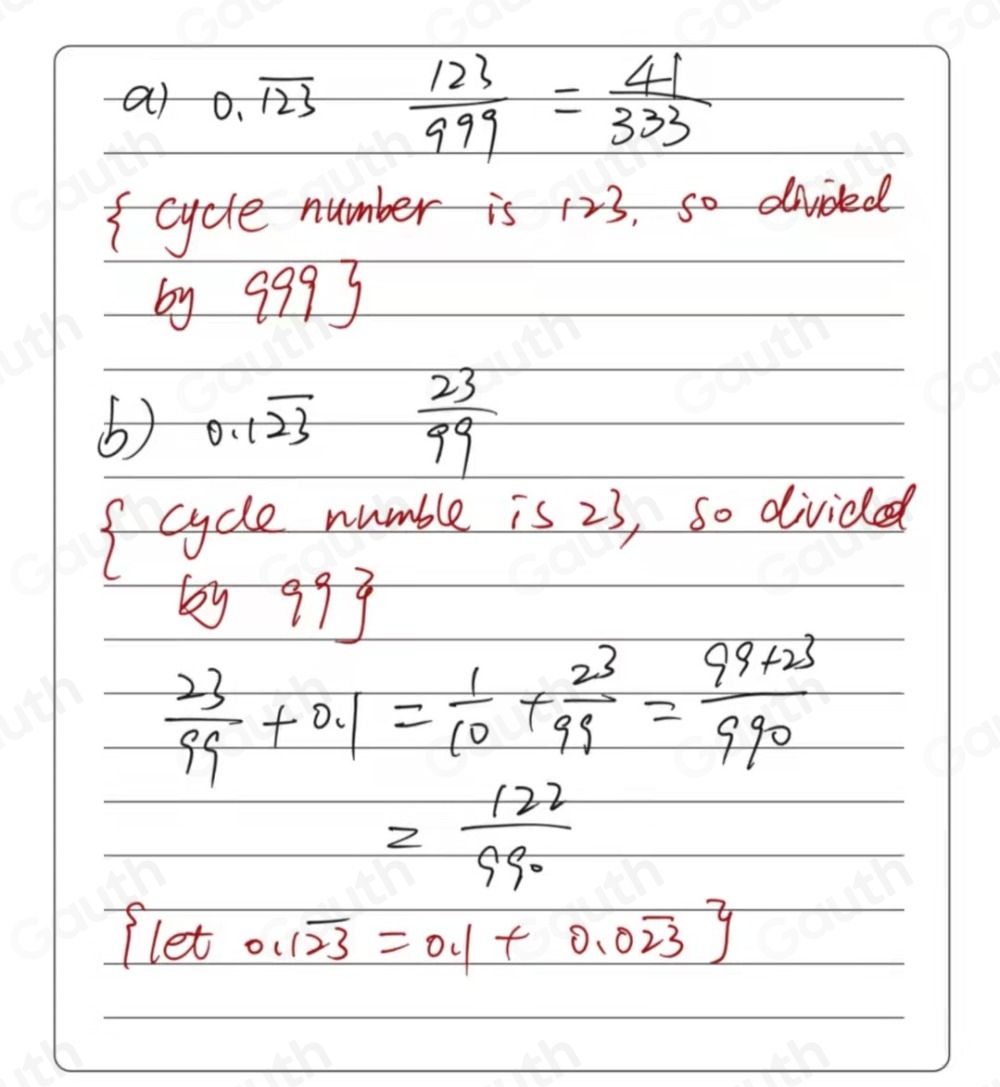 a) 0.1̅2̅3̅ 123/999 = 41/333
{ cycle number is 123, so divided
by 999 }
b) 0.12̅3̅ 23/99
{ cycle numble is 23, so divided
by 99 }
23/99 + 0.1 = 1/10 + 23/99 = 99+23/990
= 122/990
{ let 0.12̅3̅ = 0.1 + 0.02̅3̅ }
Gauth